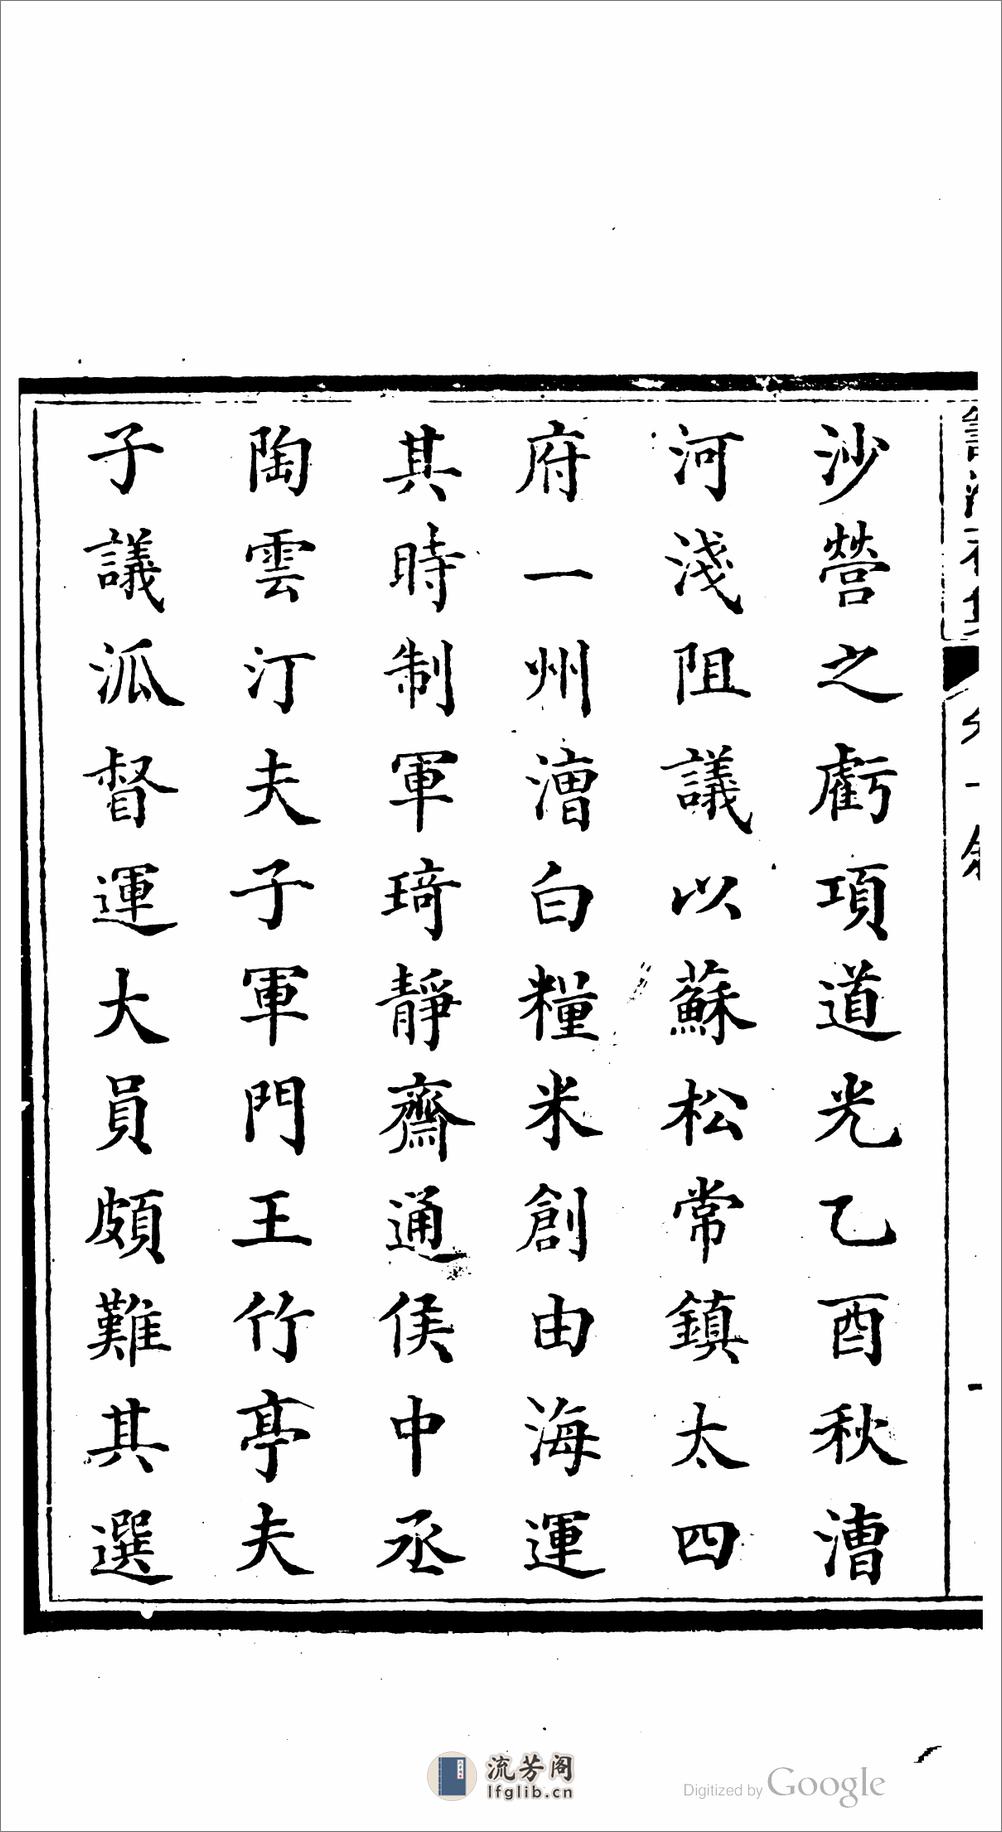 沙營之虧項道光乙酉秋漕
河淺阻議以蘇松常鎮太四
府一州漕白糧米創由海運
其時制軍琦靜齋通侯中丞
陶雲汀夫子軍門王竹亭夫
子議派督運大員頗難其選
流芳阁
lfglib.cn
Digitized by Google